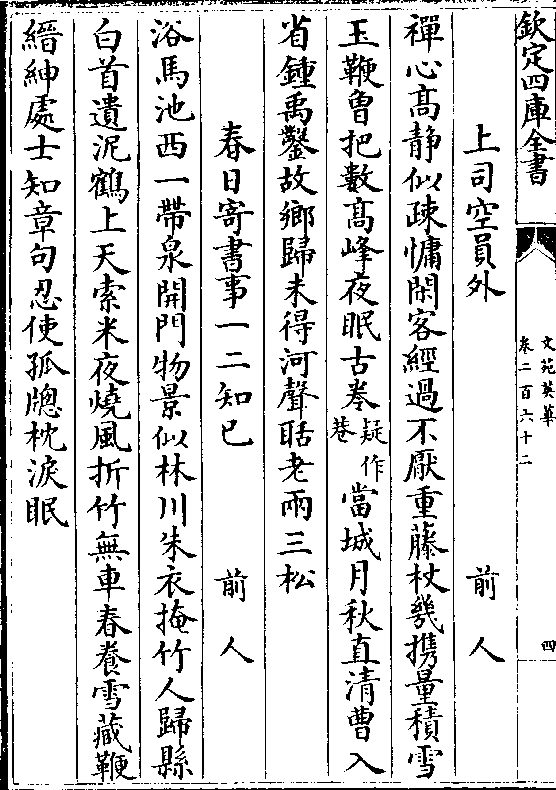 欽定四庫全書
文苑英華
卷二百六十二
四
上司空員外 前人
禪心髙静似疎慵閑客經過不厭重藤杖幾携量積雪
玉鞭曽把數髙峰夜眠古巻疑作巷當城月秋直清曹入
省鍾禹鑿故鄉歸未得河聲聒老兩三松
春日寄書事一二知已 前人
浴馬池西一帶泉開門物景似林川朱衣掩竹人歸縣
白首遺泥鶴上天索米夜燒風折竹無車春養雪藏鞭
縉紳處士知章句忍使孤牕枕淚眠